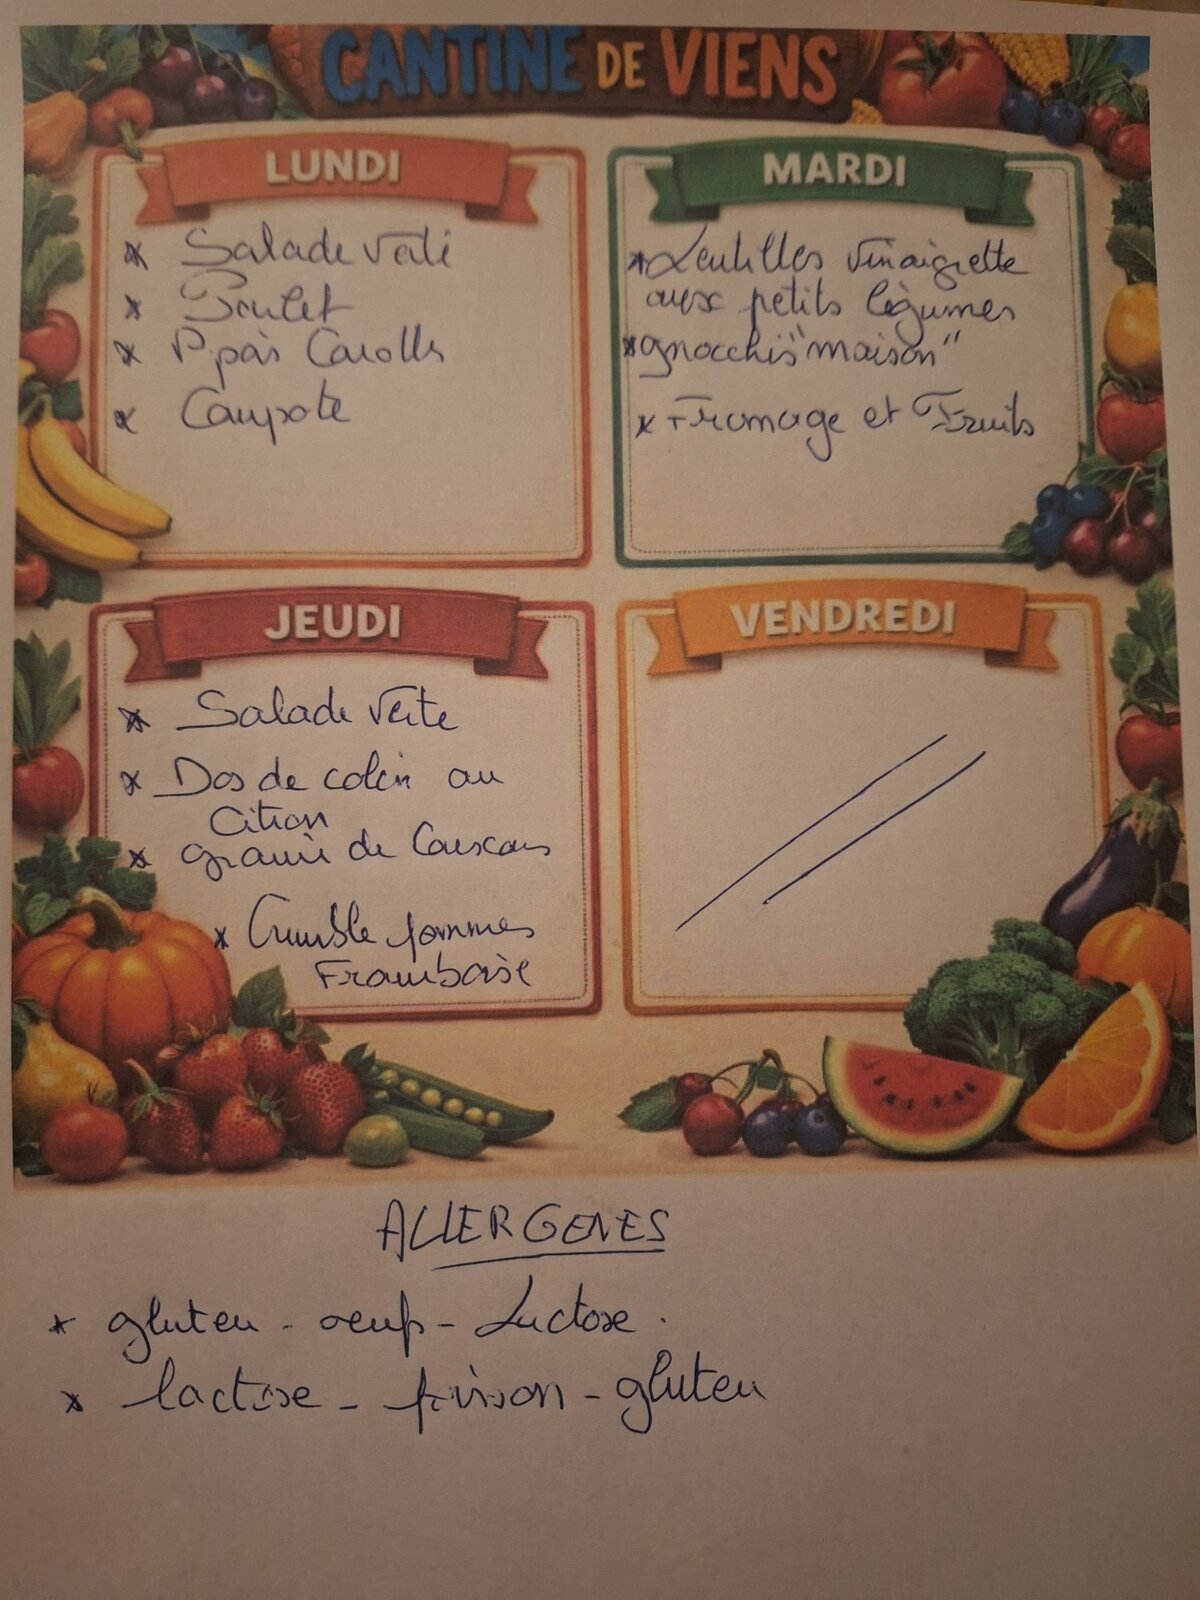 CANTINE DE VIENS
LUNDI
* Salade verte
* Poulet
* P. pois Carottes
* Compote
MARDI
* Lentilles vinaigrette
aux petits légumes
* gnocchis "maison"
* Fromage et Fruits
JEUDI
* Salade verte
* Dos de colin au
Citron
* graine de Couscous
* Crumble pommes
Framboise
VENDREDI
ALLERGENES
* gluten - oeuf - Lactose.
* lactose - poisson - gluten